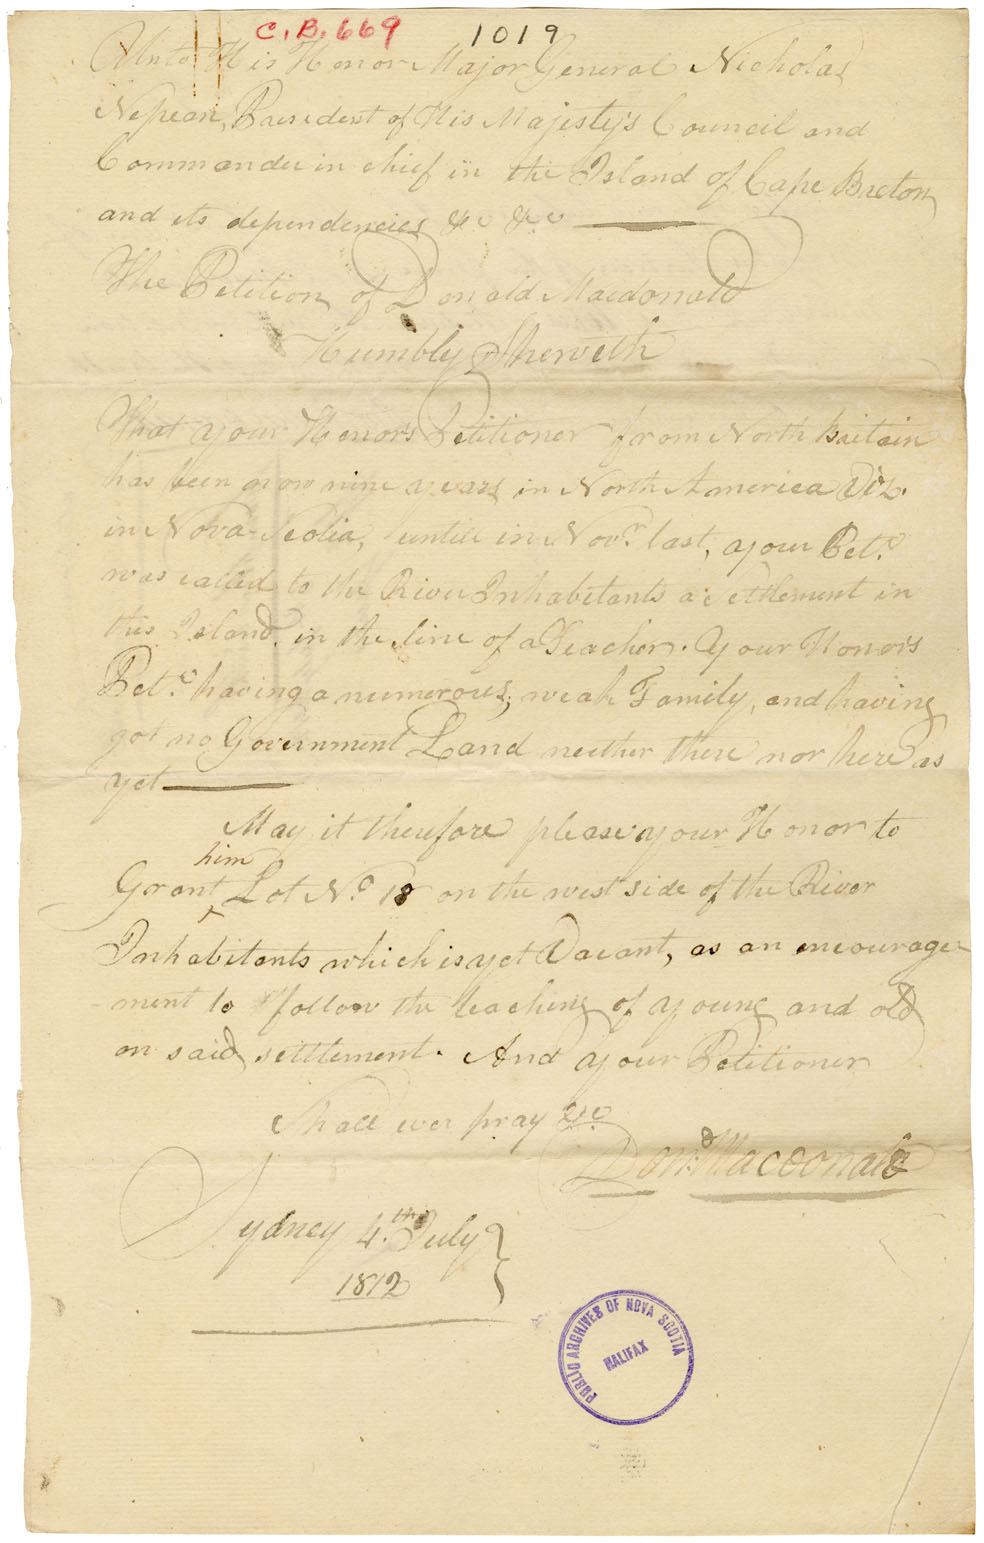 C.B. 669 1019
Unto His Honor Major General Nicholas
Nepean, President of His Majesty's Council and
Commander in chief in the Island of Cape Breton
and its dependencies &c &c
The Petition of Donald Macdonald
Humbly Sheweth
That your Honor's Petitioner from North Britain
has been now nine years in North America Viz.
in Nova-Scotia, until in Novr. last, your Petr.
was called to the River Inhabitants a Settlement in
this Island, in the line of a Teacher. Your Honors
Petr. having a numerous, weak Family, and having
got no Government Land neither there nor here as
yet
May it therefore please your Honor to
him
Grant ‸ Lot No. 18 on the west side of the River
Inhabitants which is yet Vacant, as an encourage-
ment to follow the teaching of young and old
on said settlement. And your Petitioner
Shall ever pray &c
Dond. Macdonald
Sydney 4th. July
1812
PUBLIC ARCHIVES OF NOVA SCOTIA
HALIFAX